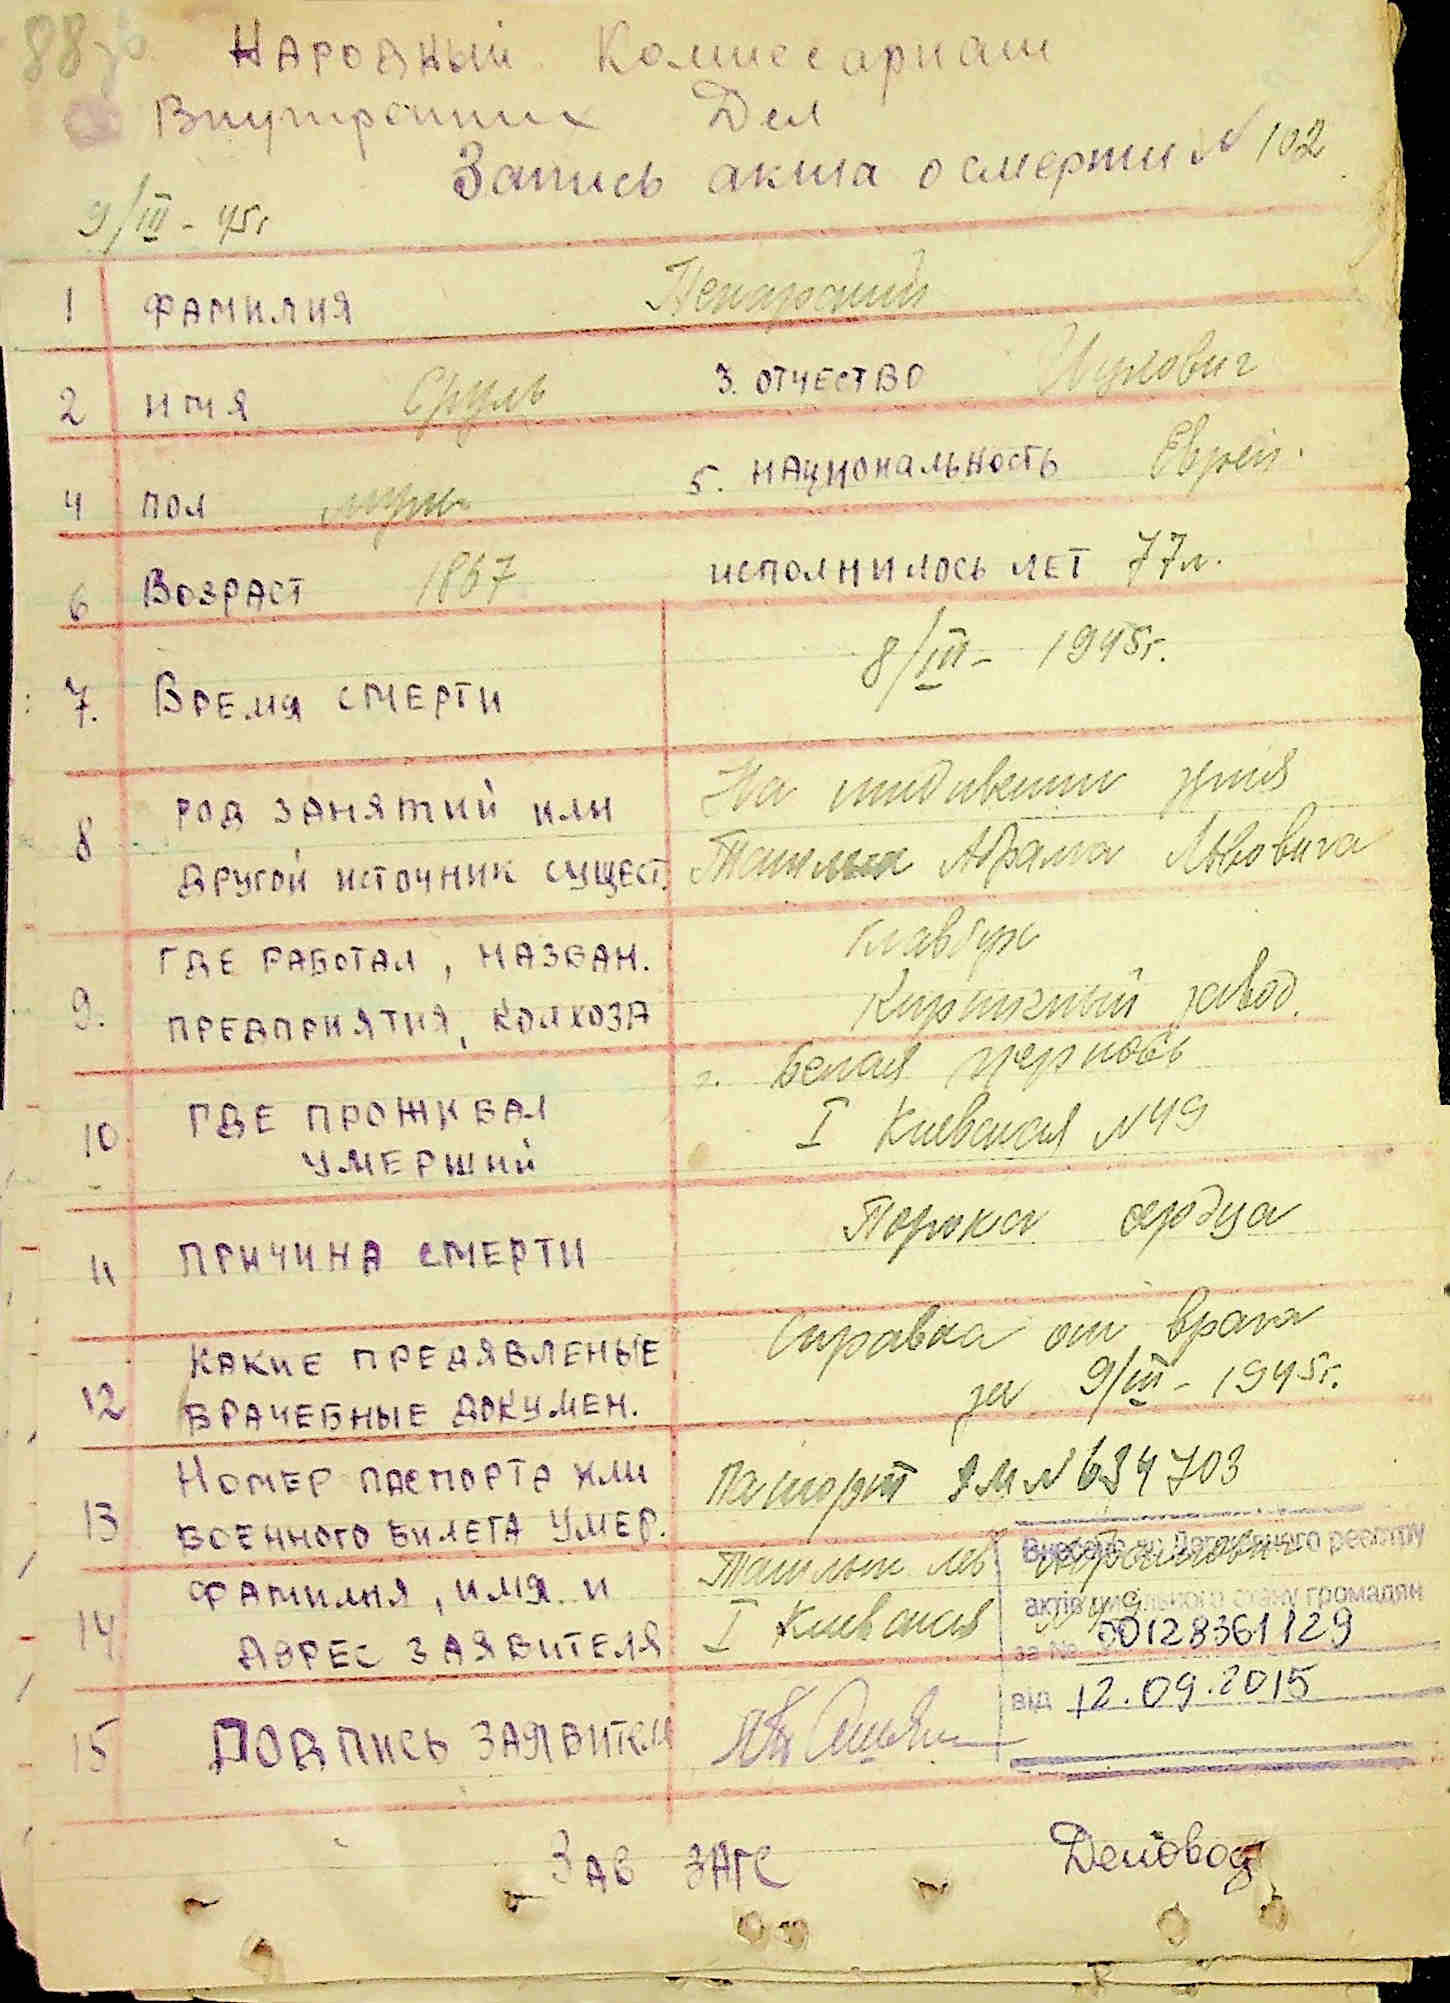 88
Народный Комиссариат
Внутренних Дел
Запись акта о смерти N 102
9/III - 45г
1 ФАМИЛИЯ Пекарский
2 ИМЯ Сруль 3. ОТЧЕСТВО
4 ПОЛ муж. 5. НАЦИОНАЛЬНОСТЬ Еврей.
6 ВОЗРАСТ 1867 ИСПОЛНИЛОСЬ ЛЕТ 77 л.
7. ВРЕМЯ СМЕРТИ 8/III - 1945г.
8 РОД ЗАНЯТИЙ ИЛИ На иждивении зятя
ДРУГОЙ ИСТОЧНИК СУЩЕСТ. Абрама Львовича
9. ГДЕ РАБОТАЛ, НАЗВАН. главбух
ПРЕДПРИЯТИЯ, КОЛХОЗА Кирпичный завод.
10 ГДЕ ПРОЖИВАЛ г. Белая Церковь
УМЕРШИЙ I Киевская N 49
11 ПРИЧИНА СМЕРТИ Порока сердца
12 КАКИЕ ПРЕДЯВЛЕНЫЕ Справка от врача
ВРАЧЕБНЫЕ ДОКУМЕН. за 9/III - 1945г.
13 НОМЕР ПАСПОРТА ИЛИ Паспорт ЯМ N 634703
ВОЕННОГО БИЛЕТА УМЕР.
14 ФАМИЛИЯ, ИМЯ И Лев Абрамович
АДРЕС ЗАЯВИТЕЛЯ I Киевская N 49
15 ПОДПИСЬ ЗАЯВИТЕЛЯ
Внесено до Державного реєстру
актів цивільного стану громадян
за № 00128361129
від 12.09.2015
Зав ЗАГС Деловод